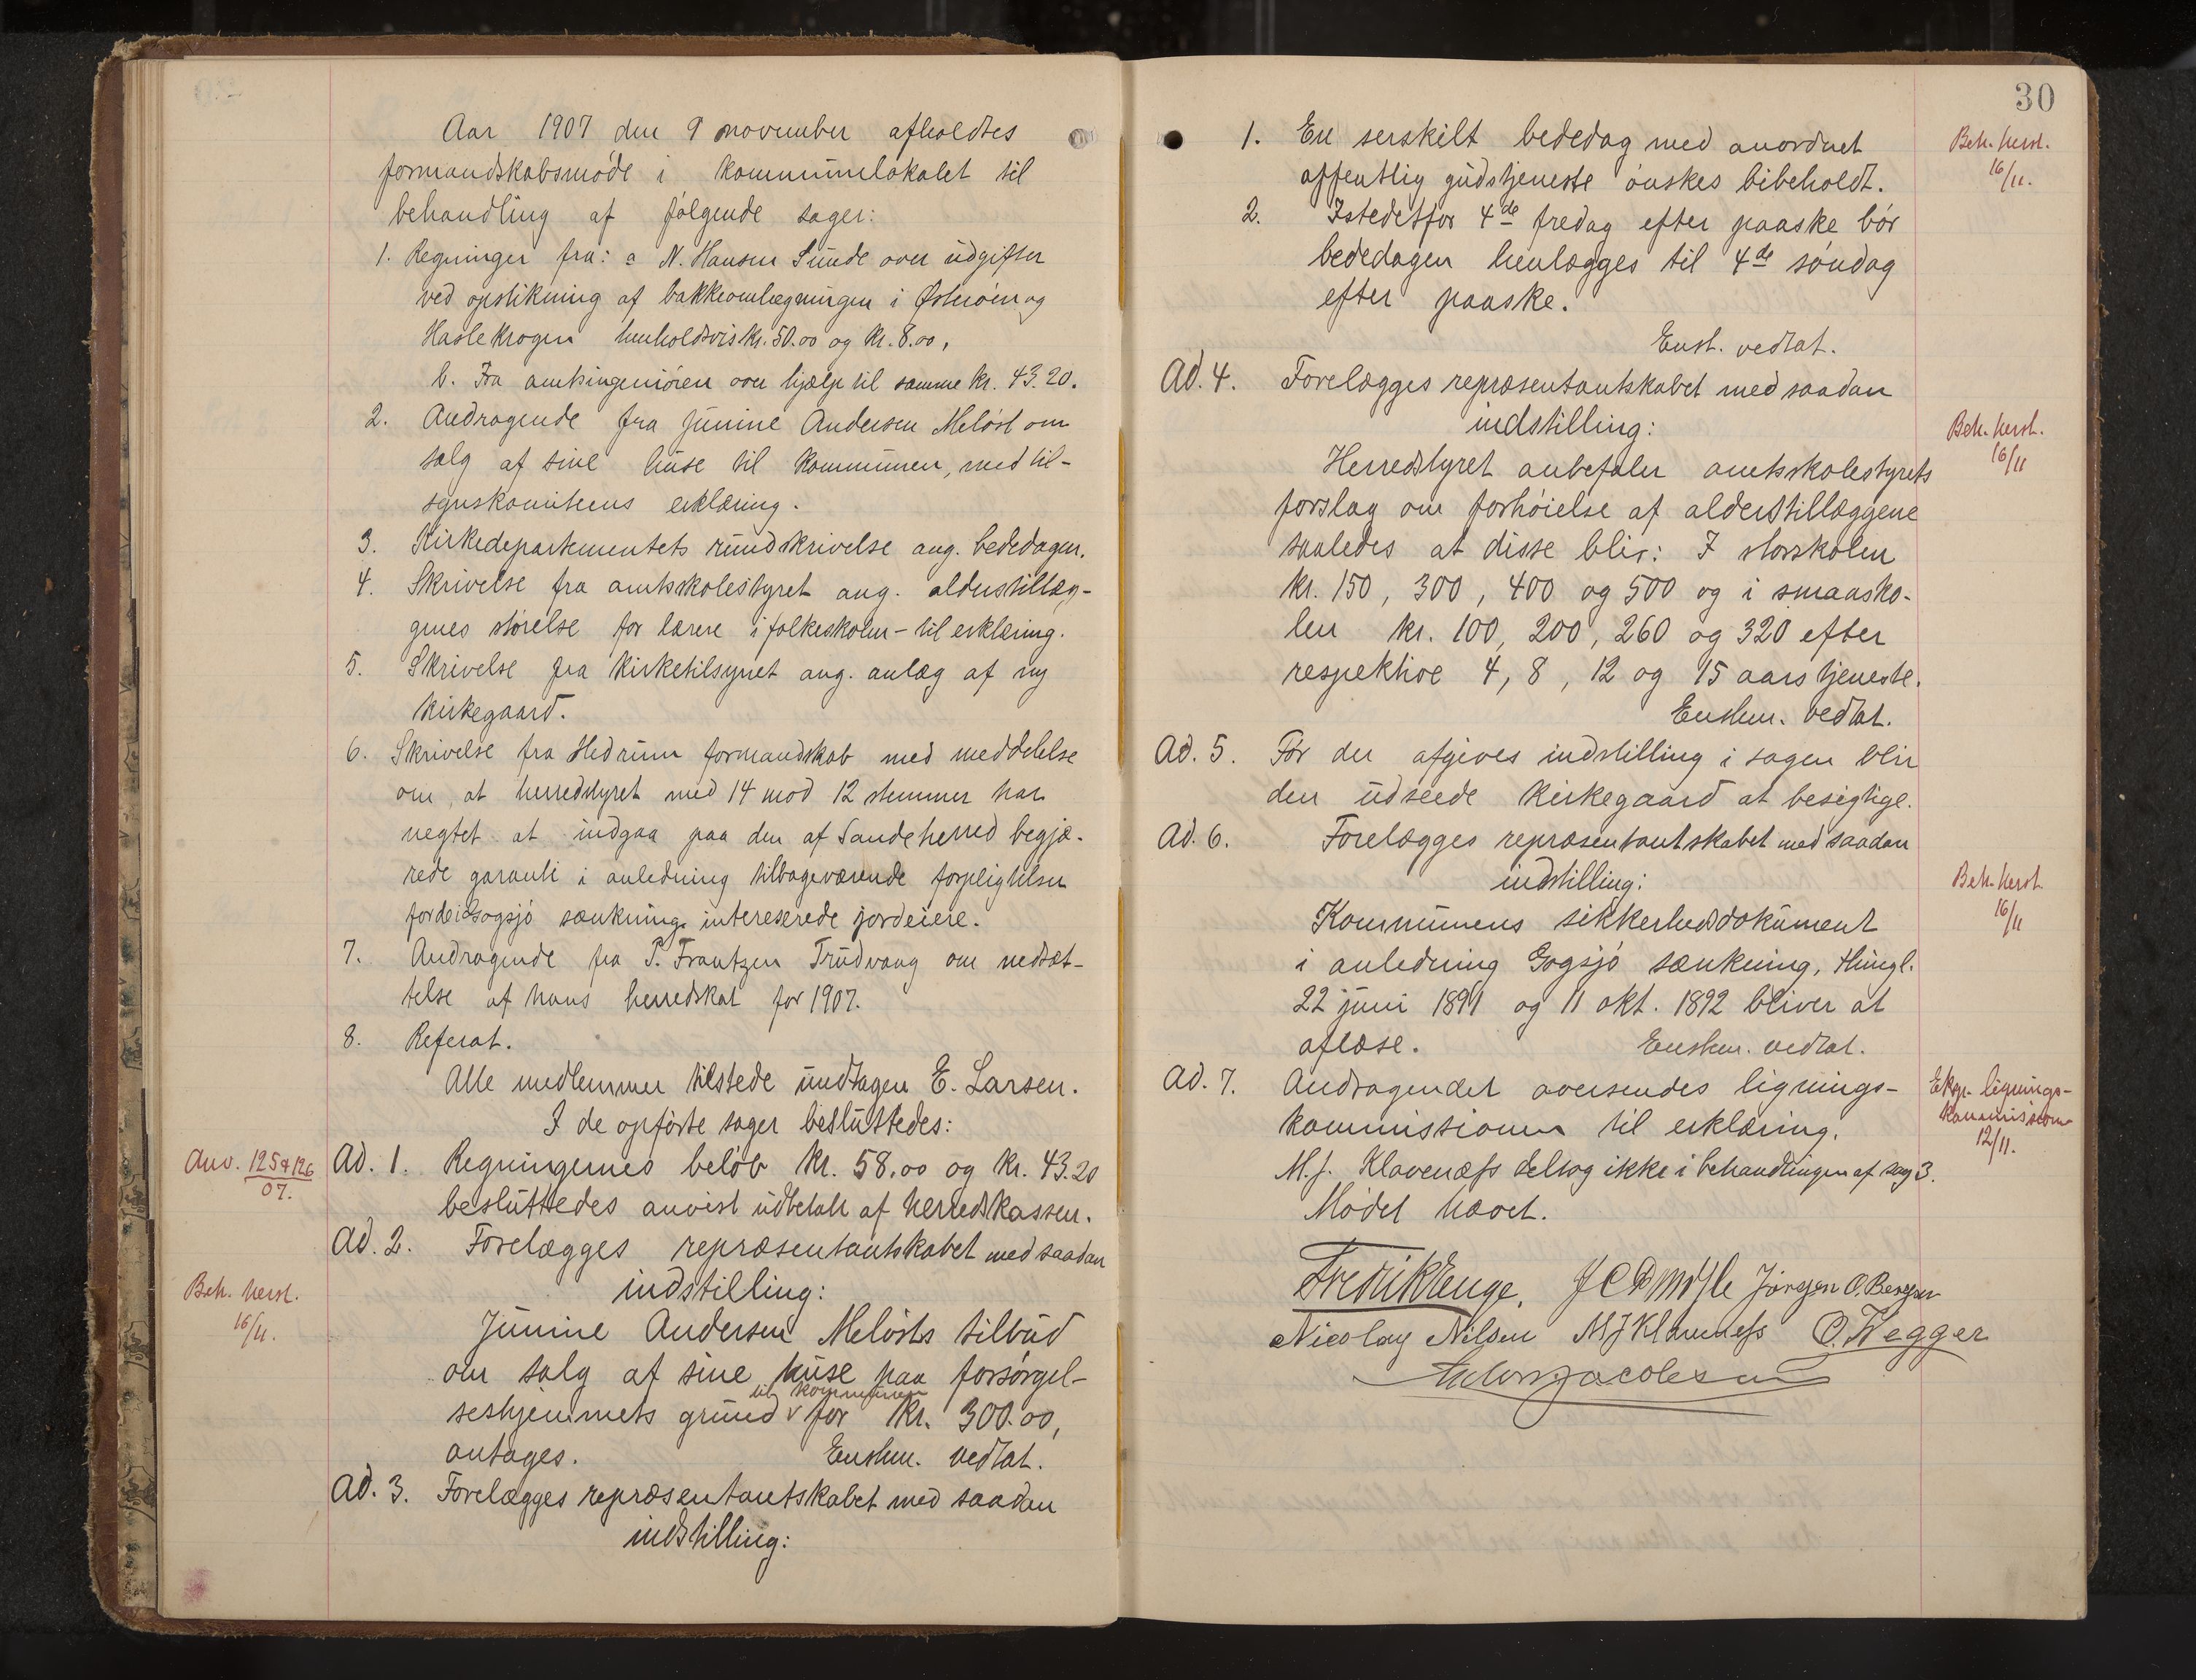 Aar 1907 den 9 november afholdtes
formandskabsmøde i kommunelokalet til
behandling af følgende sager:
1. Regninger fra: a N. Hansen Sunde over udgifter
ved opstikning af bakkeomlægningen i Østerøen og
Haslekrogen henholdsvis kr. 50.00 og kr. 8.00,
b. Fra amtsingeniøren over hjælp til samme kr. 43.20.
2. Andragende fra Junine Andersen Meløst om
salg af sine huse til kommunen, med til-
synskomiteens erklæring.
3. Kirkedepartementets rundskrivelse ang. bededagen.
4. Skrivelse fra amtsskolestyret ang. alderstillæg-
genes størelse for lærere i folkeskolen - til erklæring.
5. Skrivelse fra kirketilsynet ang. anlæg af ny
kirkegaard.
6. Skrivelse fra Hedrum formandskab med meddelelse
om, at herredstyret med 14 mod 12 stemmer har
negtet at indgaa paa den af Sandeherred begjæ-
rede garanti i anledning tilbageværende forpligtelser
for de i Gogsjø sænkning intereserede jordeiere.
7. Andragende fra P. Frantzen Trudvang om nedsæt-
telse af hans herredskat for 1907.
8. Referat.
Alle medlemmer tilstede undtagen E. Larsen.
I de opførte sager besluttedes:
Anv. 125 & 126
07.
Ad. 1. Regningernes beløb kr. 58.00 og kr. 43.20
besluttedes anvist udbetalt af herredskassen.
Ad. 2. Forelægges repræsentantskabet med saadan
indstilling:
Beh. herst.
16/11.
Junine Andersen Meløsts tilbud
om salg af sine huse paa forsørgel-
til kommunen
seshjemmets grund v for kr. 300.00,
antages. Enstem. vedtat.
Ad. 3. Forelægges repræsentantskabet med saadan
indstilling:
30
1. En serskilt bededag med anordnet
offentlig gudstjeneste ønskes bibeholdt.
Beh. herst.
16/11.
2. Istedetfor 4de fredag efter paaske bør
bededagen henlægges til 4de søndag
efter paaske.
Enst. vedtat.
Ad. 4. Forelægges repræsentantskabet med saadan
indstilling:
Beh. herst.
16/11
Herredstyret anbefaler amtsskolestyrets
forslag om forhøielse af alderstillæggene
saaledes at disse blir: I storskolen
kr. 150, 300, 400 og 500 og i smaasko-
len kr. 100, 200, 260 og 320 efter
respektive 4, 8, 12 og 15 aars tjeneste.
Enstem. vedtat.
Ad. 5. Før der afgives indstilling i sagen blir
den udseede kirkegaard at besigtige.
Ad. 6. Forelægges repræsentantskabet med saadan
indstilling:
Beh. herst.
16/11
Kommunens sikkerhedsdokument
i anledning Gogsjø sænkning, thingl.
22 juni 1891 og 11 okt. 1892 bliver at
aflæse. Enstem. vedtat.
Ad. 7. Andragendet oversendes lignings-
kommissionen til erklæring.
Eksp. lignings-
kommissionen
12/11.
M. J. Klavenæss deltog ikke i behandlingen af sag 3.
Mødet hævet.
Fredrik Enge. Jørgen O. Bergsen
Nicolay Nilsen M J Klavenæss O. Hegger
Anton Jacobsen